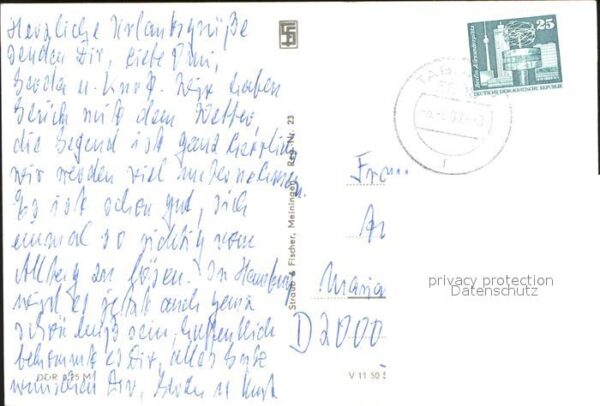 Herzliche Urlaubsgrüße
senden Dir, liebe
u. Knut. Wir haben
Glück mit dem Wetter
die Gegend ist ganz herrlich
wir werden viel unternehmen.
Es ist schon gut, sich
einmal so richtig vom
Alltag zu lösen. In Hamburg
wird es jetzt auch ganz
schön heiß sein, hoffentlich
bekommt es Dir, alles Gute
wünschen Dir, u Knut
DDR 0,25 M
Straub & Fischer, Meiningen Reg.-Nr. 23
25
DEUTSCHE DEMOKRATISCHE REPUBLIK
Maria
D 2000
V 11 50
privacy protection
Datenschutz